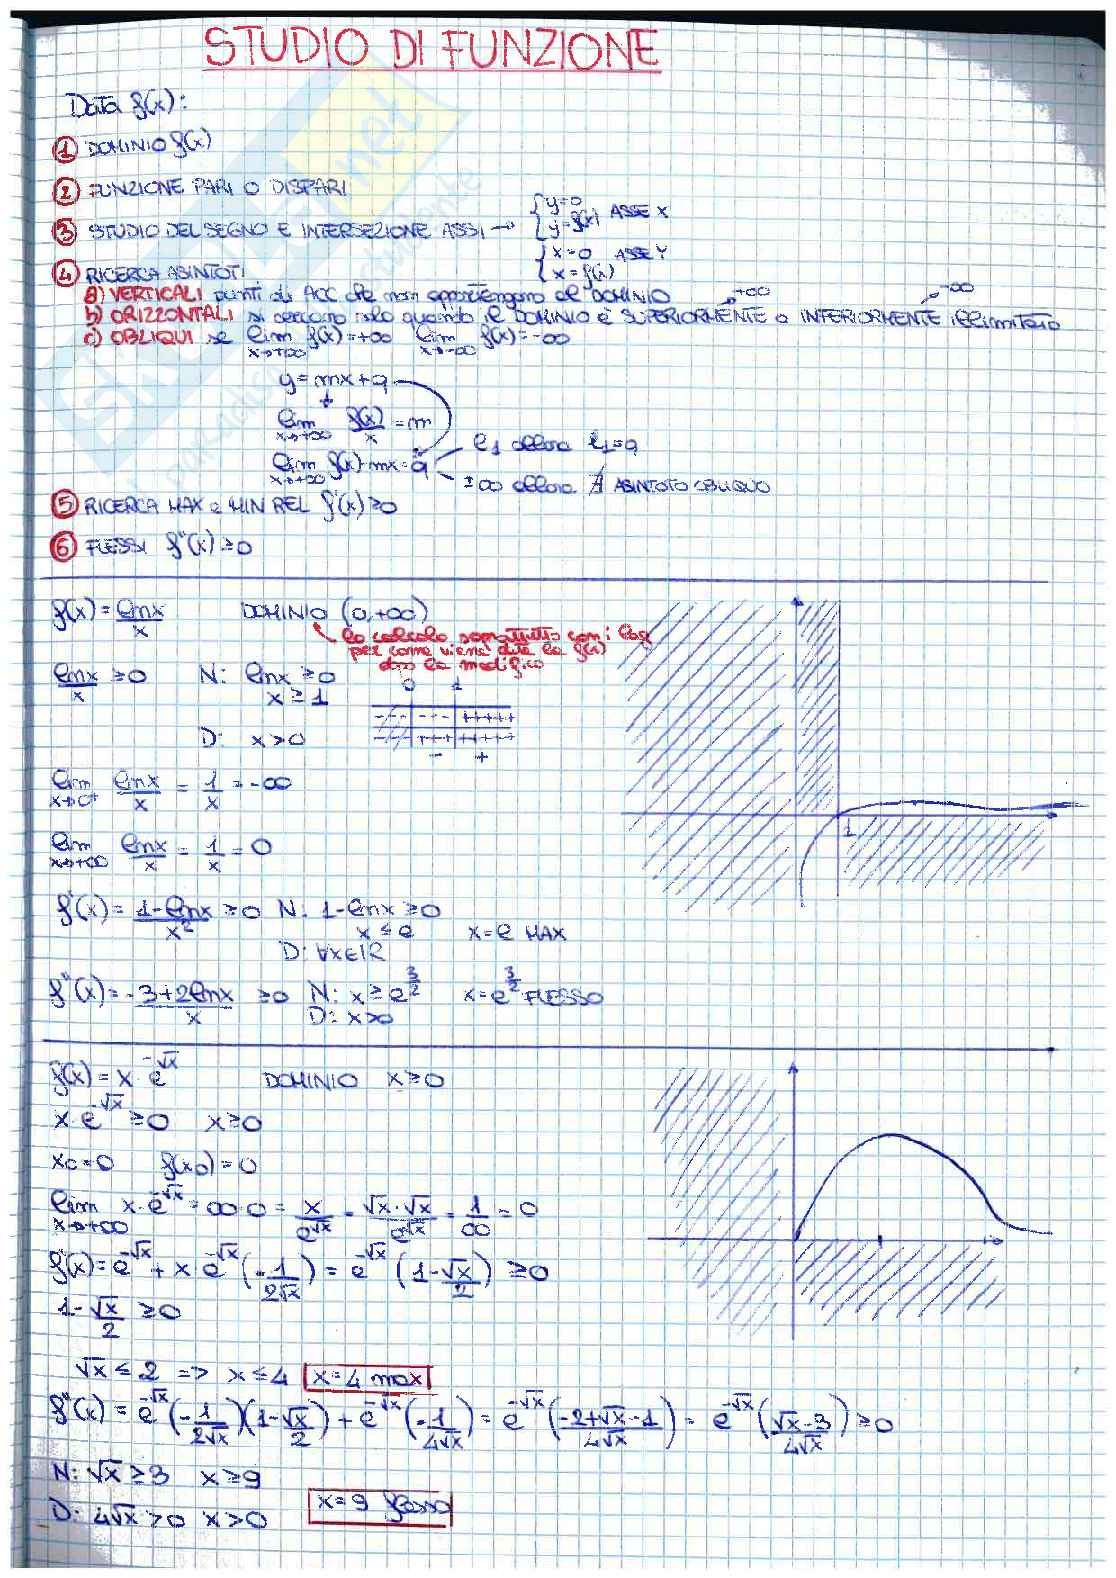 STUDIO DI FUNZIONE
Data f(x):
① DOMINIO f(x)
② FUNZIONE PARI O DISPARI
③ STUDIO DEL SEGNO E INTERSEZIONE ASSI → { y=0 y=f(x) ASSE X
{ x=0 x=f(x) ASSE Y
④ RICERCA ASINTOTI
a) VERTICALI punti di ACC che non appartengono al DOMINIO
b) ORIZZONTALI si cercano solo quando il DOMINIO è SUPERIORMENTE o INFERIORMENTE illimitato → +∞ → -∞
c) OBLIQUI se lim x→+∞ f(x)=+∞ lim x→-∞ f(x)=-∞
y=mx+q
lim x→+∞ f(x)/x = m
lim x→+∞ f(x)-mx=q
l1 allora l1=q
±∞ allora ∄ ASINTOTO OBLIQUO
⑤ RICERCA MAX e MIN REL f'(x)≥0
⑥ FLESSI f"(x)≥0
f(x)=lnx/x DOMINIO (0,+∞)
lo calcolo soprattutto con i log
per come viene data la f(x)
dopo la modifico
lnx/x ≥0 N: lnx≥0
x≥1
D: x>0
0 1
--- --- +++++
--- ++++ +++++
- +
lim x→0+ lnx/x = 1/x = -∞
lim x→+∞ lnx/x = 1/x = 0
1
f'(x)= 1-lnx/x² ≥0 N: 1-lnx≥0
x≤e x=e MAX
D: ∀x∈R
f"(x)= -3+2lnx/x ≥0 N: x≥e^3/2 x=e^3/2 FLESSO
D: x>0
f(x)=x·e^-√x DOMINIO x≥0
x·e^-√x ≥0 x≥0
x0=0 f(x0)=0
lim x→+∞ x·e^-√x = ∞·0 = x/e^√x = √x·√x/e^√x = 1/∞ = 0
f'(x)= e^-√x + x·e^-√x (-1/2√x) = e^-√x (1-√x/2) ≥0
1-√x/2 ≥0
√x≤2 => x≤4 x=4 max
f"(x)= e^-√x (-1/2√x)(1-√x/2) + e^-√x (-1/4√x) = e^-√x (-2+√x-1/4√x) = e^-√x (√x-3/4√x) ≥0
N: √x≥3 x≥9
D: 4√x>0 x>0 x=9 flesso